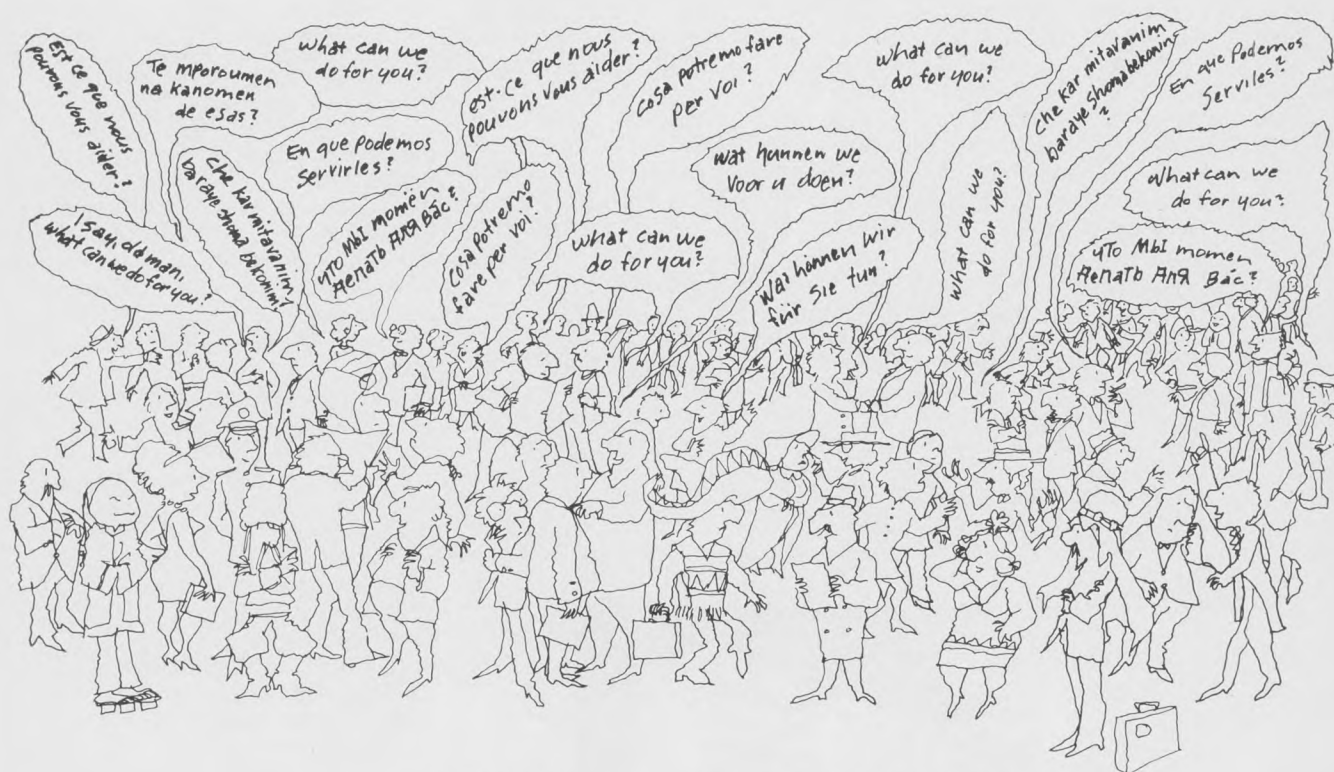 Est ce que nous
pouvons vous aider?
Te mporoumen
na kanomen
de esas?
what can we
do for you?
est-ce que nous
pouvons vous aider?
cosa potremo fare
per voi?
what can we
do for you?
che kar mitavanim
baraye shoma bekonim
?
En que Podemos
Serviles?
I say, old man,
what can we do for you?
che kar mitavanim
baraye shoma bekonim?
En que Podemos
servirles?
что мы момеён
Аелать Аля Вáс?
cosa potremo
fare per voi?
what can we
do for you?
wat hunnen we
Voor u doen?
Was hönnen wir
für Sie tun?
what can we
do for you?
what can we
do for you?
что мы момен
Аелать Аля Вáс?